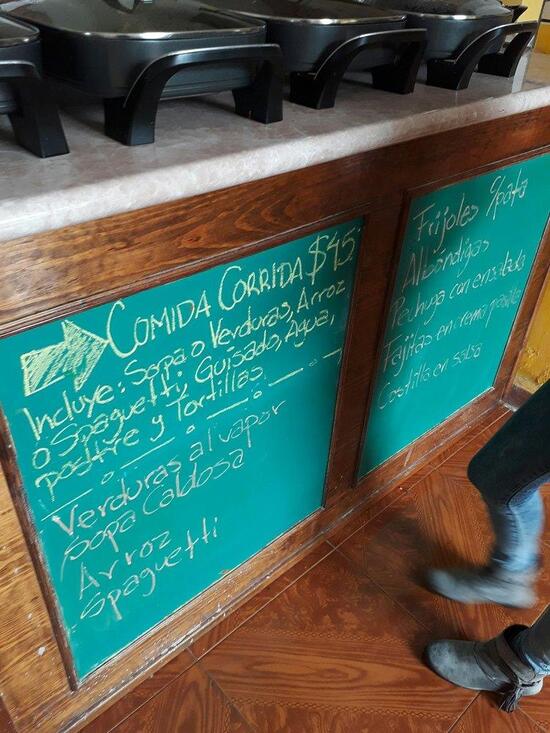 COMIDA CORRIDA $45.
Incluye: Sopa o Verduras, Arroz
o Spaguetti, Guisado, Agua,
postre y Tortillas.
Verduras al vapor
Sopa Caldosa
Arroz
Spaguetti
Frijoles c/pata
Albóndigas
Pechuga con ensalada
Fajitas en crema
Costilla en salsa